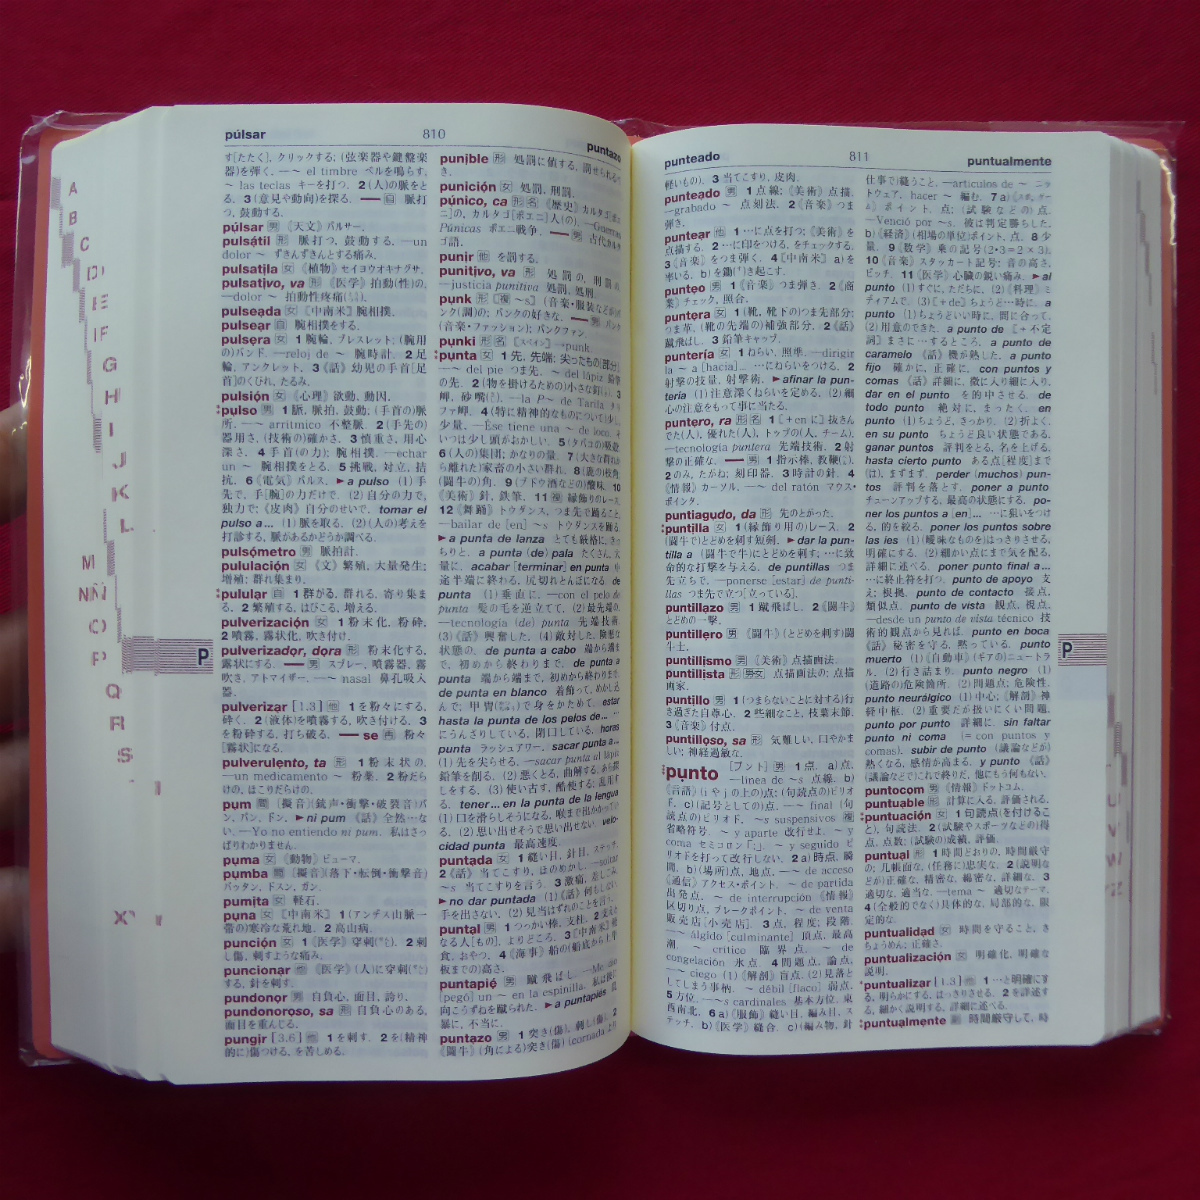 púlsar
810
puntazo
す[たたく], クリックする; (弦楽器や鍵盤楽
器)を弾く. —~ el timbre ベルを鳴らす.
~ las teclas キーを打つ. 2 (人)の脈をと
る. 3 (意見や動向)を探る. — 自 脈打
つ, 鼓動する.
púlsar 男 《天文》パルサー.
pulsátil 形 脈打つ, 鼓動する. —un
dolor ~ ずきんずきんとする痛み.
pulsatila 女 《植物》セイヨウオキナグサ.
pulsativo, va 形 《医学》拍動(性)の.
—dolor ~ 拍動性疼痛
pulseada 女 《中南米》腕相撲.
pulsear 自 腕相撲をする.
pulsera 女 1 腕輪, ブレスレット; (腕用
の)バンド. —reloj de ~ 腕時計. 2 足
輪, アンクレット. 3 《話》幼児の手首[足
首]のくびれ, たるみ.
pulsión 女 《心理》欲動, 動因.
pulso 男 1 脈, 脈拍, 鼓動; (手首の)脈
所. —~ arrítmico 不整脈. 2 (手先の)
器用さ, (技術の)確かさ. 3 慎重さ, 用心
深さ. 4 手首の力; 腕相撲. —echar
un ~ 腕相撲をとる. 5 挑戦, 対立, 拮
抗. 6 《電気》パルス. ►a pulso (1) 手
先で, 手[腕]の力だけで. (2) 自分の力で,
独力で; 《皮肉》自分のせいで. tomar el
pulso a... (1) 脈を取る. (2) (人の)考えを
打診する, 脈があるかどうか調べる.
pulsómetro 男 脈拍計.
pululación 女 《文》繁殖, 大量発生;
増殖; 群れ集まり.
pulular 自 1 群がる, 群れる, 寄り集ま
る. 2 繁殖する, はびこる, 増える.
pulverización 女 1 粉末化, 粉砕.
2 噴霧, 霧状化, 吹き付け.
pulverizador, dora 形 粉末化する,
霧状にする. — 男 スプレー, 噴霧器, 霧
吹き, アトマイザー. —~ nasal 鼻孔吸入
器.
pulverizar [1.3] 他 1 を粉々にする,
砕く. 2 (液体)を噴霧する, 吹き付ける. 3
を粉砕する, 打ち破る. — se 再 粉々
[霧状]になる.
pulverulento, ta 形 1 粉末状の.
—un medicamento ~ 粉薬. 2 粉だら
けの, ほこりだらけの.
pum 間 [擬音] (銃声・衝撃・破裂音)バ
ン, パン, ドン. ►ni pum 《話》全然…な
い. —Yo no entiendo ni pum. 私はさっ
ぱりわかりません.
puma 女 《動物》ピューマ.
pumba 間 [擬音] (落下・転倒・衝撃音)
バッタン, ドスン, ガン.
pumita 女 軽石.
puna 女 《中南米》 1 (アンデス山脈一
帯の)寒冷な荒れ地. 2 高山病.
punción 女 1 《医学》穿刺. 2 刺
し傷, 刺すような痛み.
puncionar 他 《医学》(人)に穿刺
する, 針を刺す.
pundonor 男 自負心, 面目, 誇り.
pundonoroso, sa 形 自負心のある,
面目を重んじる.
pungir [3.6] 他 1 を刺す. 2 を(精神
的に)傷つける, を苦しめる.
punible 形 処罰に値する, 罰せられるべ
き.
punición 女 処罰, 刑罰.
púnico, ca 形名 《歴史》カルタゴ[ポエ
ニ]の, カルタゴ[ポエニ]人(の). —Guerras
Púnicas ポエニ戦争. — 男 古代カルタ
ゴ語.
punir 他 を罰する.
punitivo, va 形 処罰の, 刑罰の.
—justicia punitiva 処罰, 処刑.
punk 形 [複 ~s] (音楽・服装などが)パ
ンク(調)の; パンクの好きな. — 男 パンク
(音楽・ファッション); パンクファン.
punki 形名 →punk.
punta 女 1 先, 先端; 尖ったもの[部分].
—~ del pie つま先. ~ del lápiz 鉛筆
の先. 2 (物を掛けるための)小さな釘. 3
岬, 砂嘴. —la P~ de Tarifa タリ
ファ岬. 4 (特に精神的なものについて)少し,
少量. —Ése tiene una ~ de loco. そ
いつは少し頭がおかしい. 5 (タバコの)吸殻.
6 (人の)集団; かなりの量. 7 (大きな群れか
ら離れた)家畜の小さい群れ. 8 (歳の)枝角
(闘牛の)角. 9 (ブドウ酒などの)酸味. 10
《美術》針, 鉄筆. 11 複 縁飾りのレース.
12 《舞踊》トウダンス, つま先で踊ること.
—bailar de [en] ~s トウダンスを踊る.
►a punta de lanza とても厳格に, きっ
ちりと. a punta (de) pala たくさん, 大
量に. acabar [terminar] en punta 中
途半端に終わる, 尻切れとんぼになる. de
punta (1) 垂直に. —con el pelo de
punta 髪の毛を逆立てて. (2) 最先端の.
—tecnología (de) punta 先端技術.
(3) 《話》興奮した. (4) 敵対した, 険悪な
状態の. de punta a cabo 端から端ま
で, 初めから終わりまで. de punta a
punta 端から端まで, 初めから終わりまで.
de punta en blanco 着飾って, めかしこ
んで; 甲冑で身をかためて. estar
hasta la punta de los pelos de...
にうんざりしている, 閉口している. horas
punta ラッシュアワー. sacar punta a...
(1) 先を尖らせる. —sacar punta al lápiz
鉛筆を削る. (2) 悪くとる, 曲解する, あら探し
をする. (3) 使い古す, 酷使する; 乱用す
る. tener... en la punta de la lengua
(1) 口を滑らしそうになる, 喉まで出かかってい
る. (2) 思い出せそうで思い出せない. velo-
cidad punta 最高速度.
puntada 女 1 縫い目, 針目, ステッチ.
2 《話》当てこすり, ほのめかし. —soltar
~s 当てこすりを言う. 3 激痛, 差しこみ.
►no dar puntada (1) 《話》何もしない,
手を出さない. (2) 見当はずれのことを言う.
puntal 男 1 つっかい棒, 支柱. 2 支えと
なる人[もの], よりどころ. 3 《中南米》軽
食, おやつ. 4 《海事》船の(船底から上甲
板までの)高さ.
puntapié 男 蹴飛ばし. —Me dio
[pegó] un ~ en la espinilla. 私は彼に
向こうずねを蹴られた. ►a puntapiés 乱
暴に, 不当に.
puntazo 男 1 突き(傷), 刺し(傷). 2
《闘牛》(角による)突き(傷) (cornada より
punteado
811
puntualmente
軽いもの). 3 当てこすり, 皮肉.
punteado 男 1 点線; 《美術》点描.
—grabado ~ 点刻法. 2 《音楽》つま
弾き.
puntear 他 1 …に点を打つ; 《美術》を
点描する. 2 …に印をつける, をチェックする.
3 《音楽》をつま弾く. 4 《中南米》 a) を
率いる. b) を鋤き起こす.
punteo 男 1 《音楽》つま弾き. 2 《商
業》チェック, 照合.
puntera 女 1 (靴, 靴下の)つま先部分;
つま革, (靴の先端の)補強部分. 2 《話》
蹴飛ばし. 3 鉛筆キャップ.
puntería 女 1 ねらい, 照準. —dirigir
la ~ a [hacia] ... …にねらいをつける. 2
射撃の技量, 射撃術. ►afinar la pun-
tería (1) 注意深くねらいを定める. (2) 細
心の注意をもって事に当たる.
puntero, ra 形名 1 [+en に] 抜きん
でた(人), 優れた(人), トップの(人, チーム).
—tecnología puntera 先端技術. 2 射
撃の正確な. — 男 1 指示棒, 教鞭.
2 のみ, たがね; 刻印器. 3 時計の針. 4
《情報》カーソル. —~ del ratón マウス・
ポインタ.
puntiagudo, da 形 先のとがった.
puntilla 女 1 (縁飾り用の)レース. 2
(闘牛で)とどめを刺す短剣. ►dar la pun-
tilla a (闘牛で牛)にとどめを刺す; …に致
命的な打撃を与える. de puntillas つま
先立ちで. —ponerse [estar] de punti-
llas つま先で立つ[立っている].
puntillazo 男 1 蹴飛ばし. 2 《闘牛》
とどめの一撃.
puntillero 男 《闘牛》(とどめを刺す)闘
牛士.
puntillismo 男 《美術》点描画法.
puntillista 形 男女 点描画法の; 点描
画家.
puntillo 男 1 (つまらないことに対する)行
き過ぎた自尊心. 2 些細なこと, 枝葉末節.
3 《音楽》付点.
puntilloso, sa 形 気難しい, 口やかま
しい; 神経過敏な.
punto [プント] 男 1 点. a) 点.
—línea de ~s 点線. b)
《言語》(i や j の上の)点; (句読点の)ピリオ
ド. c) (記号としての)点. —~ final (句
読点の)ピリオド. ~s suspensivos 複
省略符号. ~ y aparte 改行せよ. ~ y
coma セミコロン「;」. ~ y seguido ピ
リオドを打って改行しない. 2 a) 時点, 瞬
間. b) (場)所, 地点. —~ de acceso
《通信》アクセス・ポイント. ~ de partida
出発点. ~ de interrupción 《情報》
区切り点, ブレークポイント. ~ de venta
販売店[小売店]. 3 点, 程度; 段階.
—~ álgido [culminante] 頂点, 最高
潮. ~ crítico 臨界点. ~ de
congelación 氷点. 4 問題点, 論点.
—~ ciego (1) 《解剖》盲点. (2) 見落と
してしまう事柄. ~ débil [flaco] 弱点.
5 方位. —~s cardinales 基本方位, 東
西南北. 6 a) 《服飾》縫い目, 編み目, ス
テッチ. b) 《医学》縫合. c) (編み物, 針
仕事で)縫うこと. —artículos de ~ ニッ
トウェア. hacer ~ 編む. 7 a) (スポ, ゲー
ム) ポイント, 点; (試験などの)点.
—Venció por ~s. 彼は判定勝ちした.
b) 《経済》(相場の単位)ポイント, 点. 8 少
量. 9 《数学》乗の記号 (2・3=2×3).
10 《音楽》スタッカート記号; 音の高さ,
ピッチ. 11 《医学》心臓の鋭い痛み. ►al
punto (1) すぐに, ただちに. (2) 《料理》ミ
ディアムで. (3) [+de] ちょうど…時に. a
punto (1) ちょうどいい時に, 間に合って.
(2) 用意のできた. a punto de [+不定
詞] まさに…するところ. a punto de
caramelo 《話》機が熟した. a punto
fijo 確かに, 正確に. con puntos y
comas 《話》詳細に, 微に入り細に入り.
dar en el punto を的中させる. de
todo punto 絶対に, まったく. en
punto (1) ちょうど, きっかり. (2) 折よく.
en su punto ちょうど良い状態である.
ganar puntos 評判をとる, 名を上げる.
hasta cierto punto ある点[程度]まで
(は), まずまず. perder (muchos) pun-
tos 評判を落とす. poner a punto
チューンアップする, 最高の状態にする. po-
ner los puntos a [en]... …に狙いをつけ
る, 的を絞る. poner los puntos sobre
las íes (1) (曖昧なもの)をはっきりさせる,
明確にする. (2) 細かい点にまで気を配る,
詳細に述べる. poner punto final a...
…に終止符を打つ. punto de apoyo 支
え; 根拠. punto de contacto 接点,
類似点. punto de vista 観点, 視点.
—desde un punto de vista técnico 技
術的観点から見れば. punto en boca
《話》秘密を守る, 黙っている. punto
muerto (1) 《自動車》(ギアの)ニュートラ
ル. (2) 行き詰まり. punto negro (1)
(道路の)危険箇所. (2) 問題点; 危険性.
punto neurálgico (1) 中心; 《解剖》神
経中枢. (2) 重要だが扱いにくい問題.
punto por punto 詳細に. sin faltar
punto ni coma (=con puntos y
comas). subir de punto (議論などが)
熱くなる, 感情が高まる. y punto 《話》
(議論などで)これで終りだ, 他にもう何もない.
puntocom 男 《情報》ドットコム.
puntuable 形 計算に入る, 評価される.
puntuación 女 1 句読点(を付けるこ
と), 句読法. 2 (試験やスポーツなどの)得
点, 点数; (試験の)成績, 評価.
puntual 形 1 時間どおりの, 時間厳守
の; 几帳面な, (任務に)忠実な. 2 (説明な
どが)正確な, 精密な, 綿密な, 詳細な. 3
適切な, 適当な. —tema ~ 適切なテーマ.
4 (全般的でなく)具体的な, 局部的な, 限
定的な.
puntualidad 女 時間を守ること, き
ちょうめん; 正確さ.
puntualización 女 明確化, 明確な
説明.
puntualizar [1.3] 他 1 …と明確にす
る, 明らかにする, はっきりさせる. 2 を詳述す
る, 細かく説明する, 詳細に述べる.
puntualmente 副 時間厳守して, 時
A
B
C
D
E
F
G
H
I
J
K
L
M
N
Ñ
O
P
Q
R
S
X
P
P